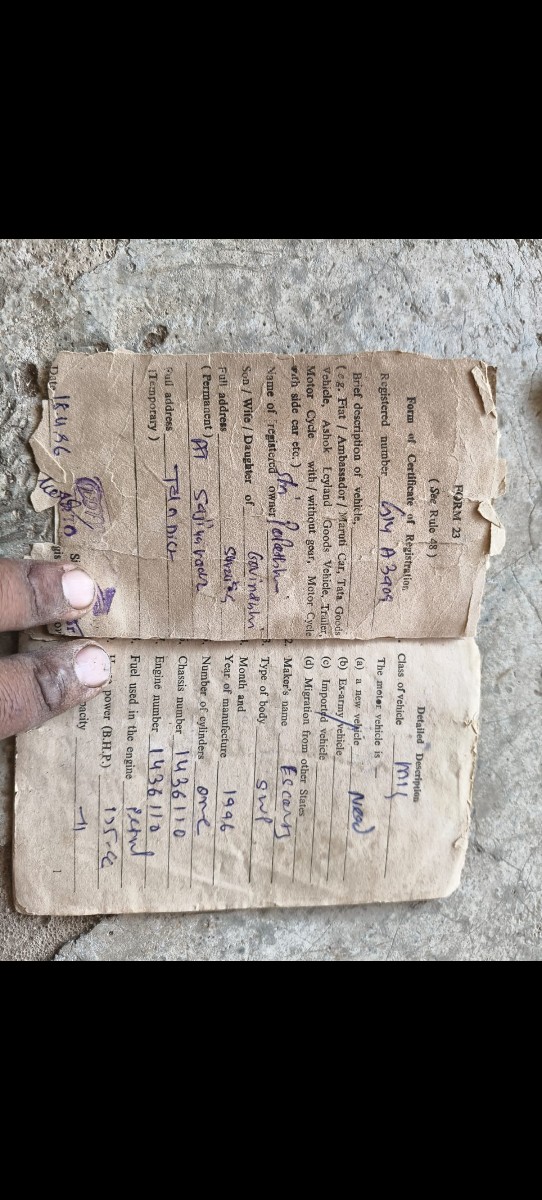 FORM 23
( See Rule 48 )
Form of Certificate of Registration
Registered number
Brief description of vehicle,
( e.g. Fiat / Ambassador / Maruti Car, Tata Goods
Vehicle, Ashok Leyland Goods Vehicle, Trailer,
Motor Cycle with / without gear, Motor Cycle
with side car etc. )
Name of registered owner
Son / Wife / Daughter of
Full address
( Permanent )
Full address Tal n Dict
(Temporary )
Date 18.4.96
Detailed Description
Class of vehicle M/c
The motor vehicle is
(a) a new vehicle New
(b) Ex-army vehicle
(c) Imported vehicle
(d) Migration from other States
2. Maker's name Escorts
Type of body
Month and
Year of manufacture 1996
Number of cylinders one
Chassis number 1436110
Engine number 1436110
Fuel used in the engine Petrol
power (B.H.P.)
1